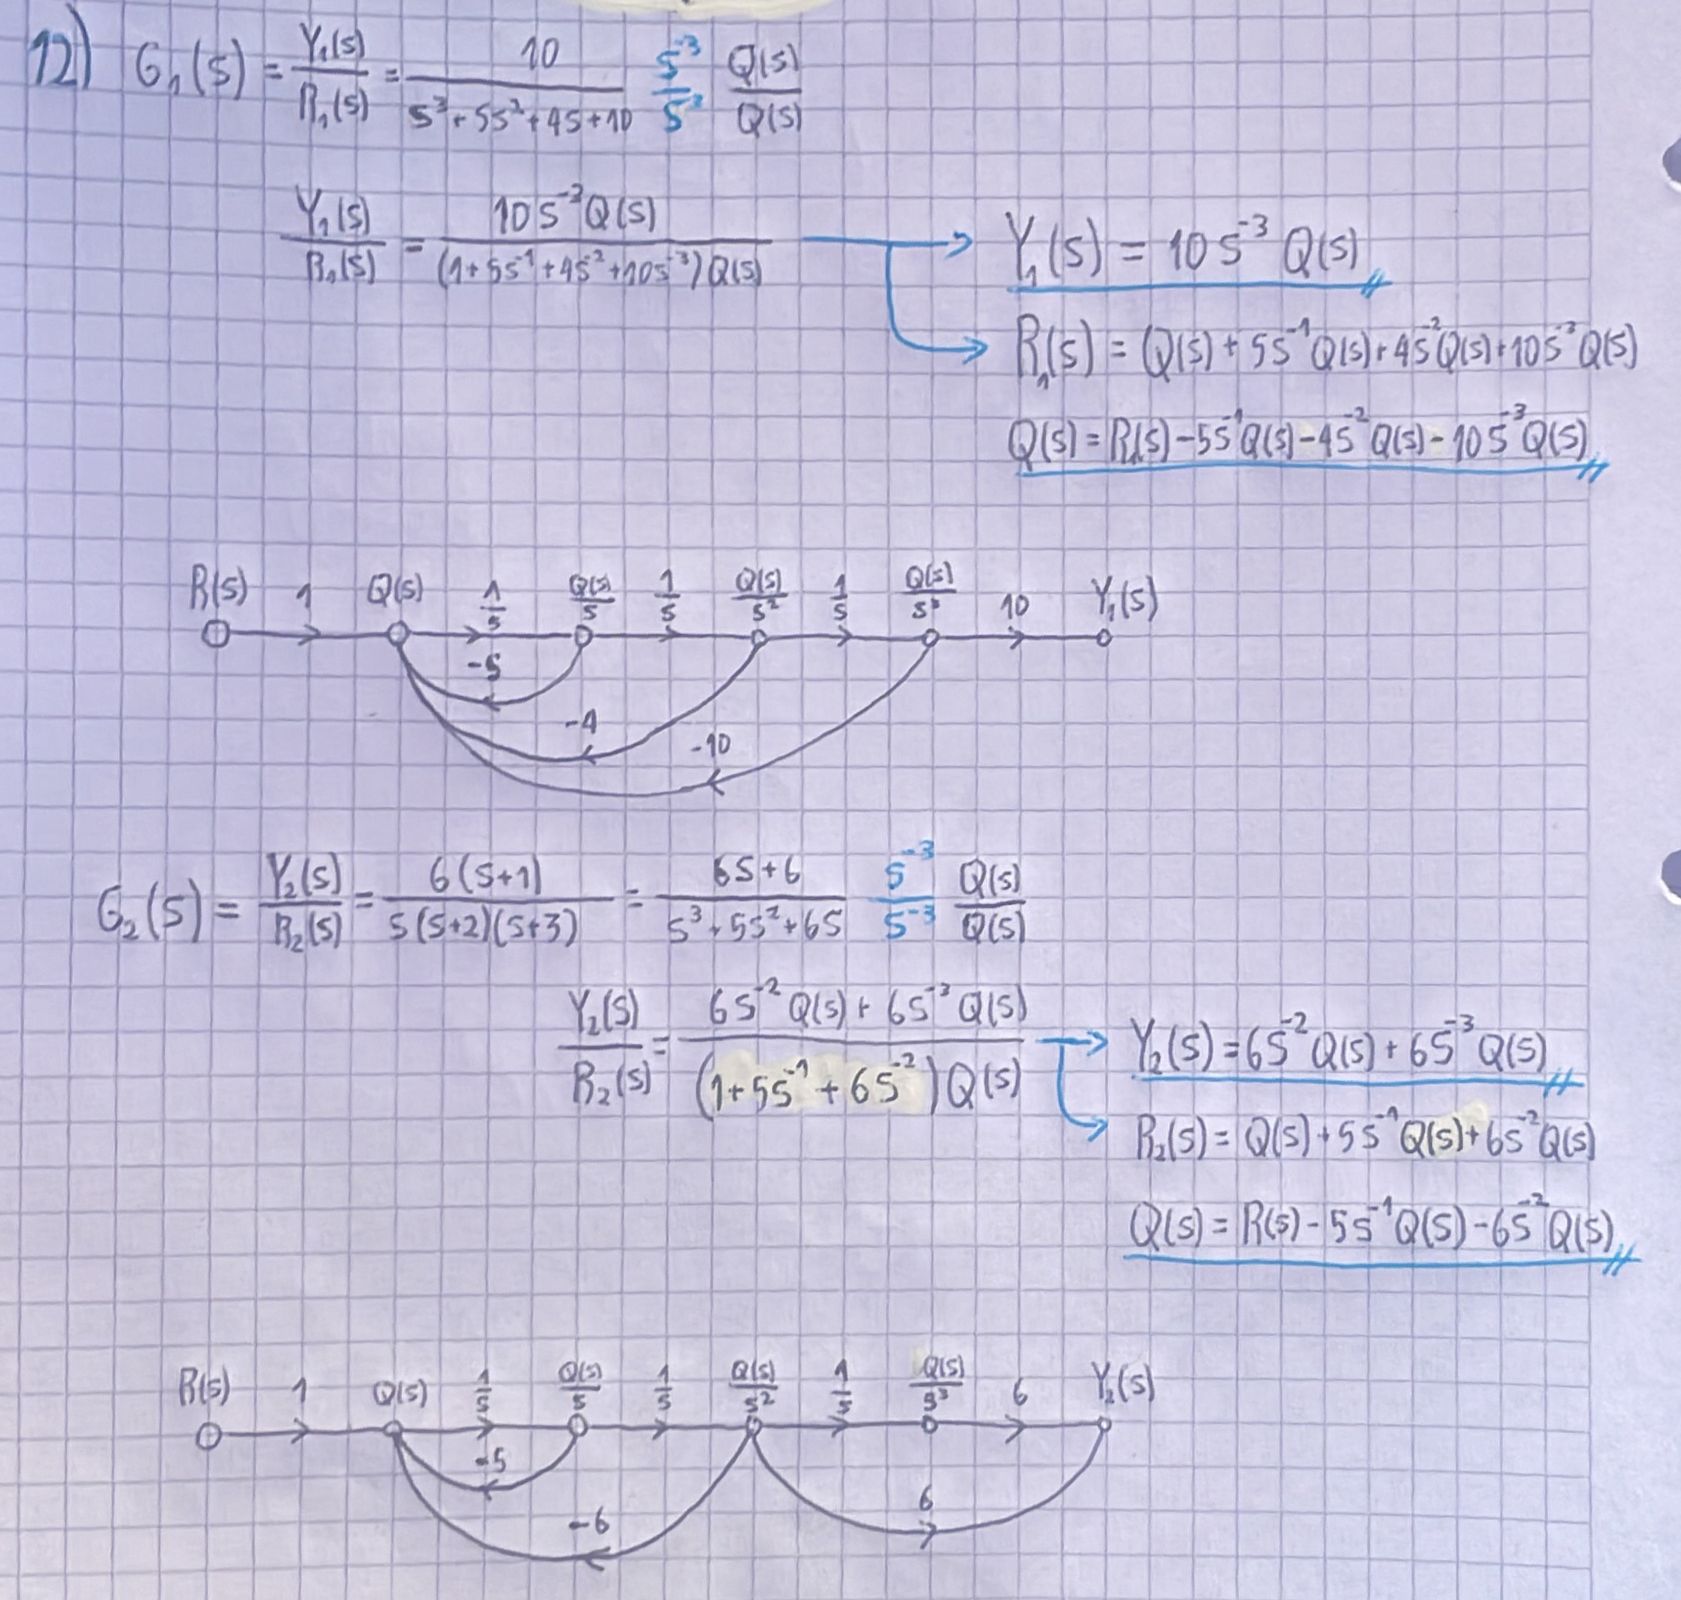 12) G₁(s) = Y₁(s)/R₁(s) = 10/(s³+5s²+4s+10) s⁻³/s⁻³ Q(s)/Q(s)
Y₁(s)/R₁(s) = 10s⁻³Q(s)/((1+5s⁻¹+4s⁻²+10s⁻³)Q(s))
Y₁(s) = 10s⁻³ Q(s)
R₁(s) = Q(s) + 5s⁻¹Q(s) + 4s⁻²Q(s) + 10s⁻³Q(s)
Q(s) = R₁(s) - 5s⁻¹Q(s) - 4s⁻²Q(s) - 10s⁻³Q(s)
R(s) 1 Q(s) 1/s Q(s)/s 1/s Q(s)/s² 1/s Q(s)/s³ 10 Y₁(s)
-5
-4
-10
G₂(s) = Y₂(s)/R₂(s) = 6(s+1)/(s(s+2)(s+3)) = (6s+6)/(s³+5s²+6s) s⁻³/s⁻³ Q(s)/Q(s)
Y₂(s)/R₂(s) = (6s⁻² Q(s) + 6s⁻³ Q(s))/((1+5s⁻¹+6s⁻²)Q(s))
Y₂(s) = 6s⁻²Q(s) + 6s⁻³Q(s)
R₂(s) = Q(s) + 5s⁻¹Q(s) + 6s⁻²Q(s)
Q(s) = R(s) - 5s⁻¹Q(s) - 6s⁻²Q(s)
R(s) 1 Q(s) 1/s Q(s)/s 1/s Q(s)/s² 1/s Q(s)/s³ 6 Y₂(s)
-5
-6
6